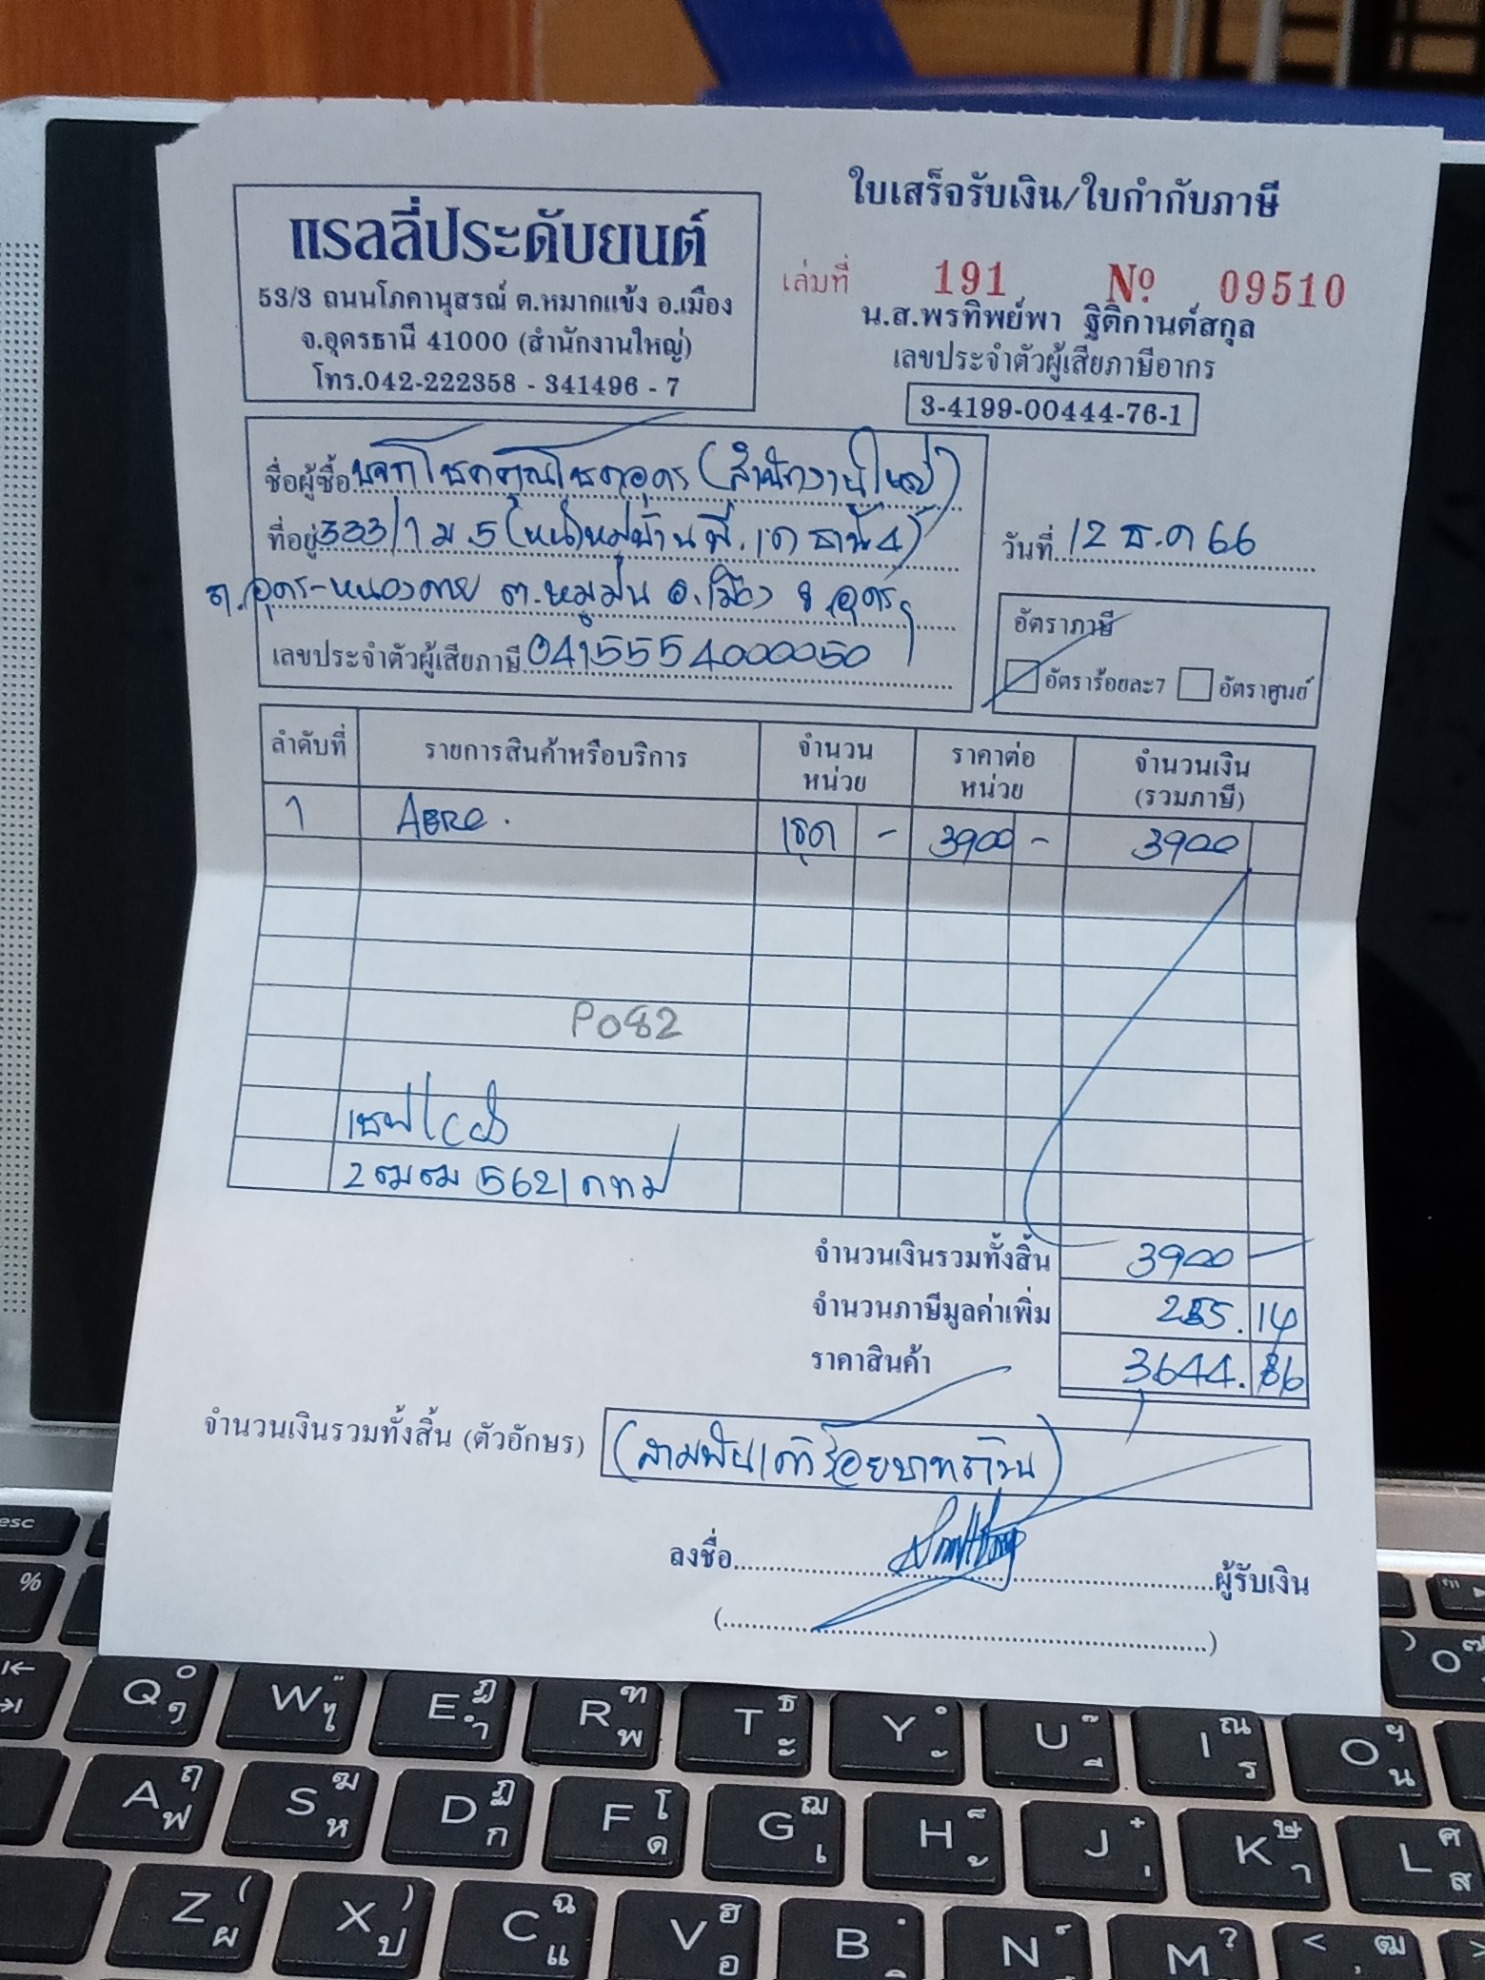 ใบเสร็จรับเงิน/ใบกำกับภาษี
แรลลี่ประดับยนต์
53/3 ถนนโภคานุสรณ์ ต.หมากแข้ง อ.เมือง
จ.อุดรธานี 41000 (สำนักงานใหญ่)
โทร.042-222358 - 341496 - 7
เล่มที่ 191 Nº 09510
น.ส.พรทิพย์พา ฐิติกานต์สกุล
เลขประจำตัวผู้เสียภาษีอากร
3-4199-00444-76-1
ชื่อผู้ซื้อ บจก โชคคูณโชคอุดร (สำนักงานใหญ่)
ที่อยู่ 333/1 ม.5 หมู่บ้าน พี.เค ธานี 4
ถ.อุดร-หนองคาย ต.หมูม่น อ.เมือง จ.อุดร
เลขประจำตัวผู้เสียภาษี 0415554000050
วันที่ 12 ธ.ค 66
อัตราภาษี
อัตราร้อยละ7 อัตราศูนย์
ลำดับที่ รายการสินค้าหรือบริการ จำนวนหน่วย ราคาต่อหน่วย จำนวนเงิน (รวมภาษี)
1 1ชุด - 3900 - 3900
P082
2ฒฒ 5621 กทม
จำนวนเงินรวมทั้งสิ้น 3900 -
จำนวนภาษีมูลค่าเพิ่ม 255.14
ราคาสินค้า 3644.86
จำนวนเงินรวมทั้งสิ้น (ตัวอักษร) (สามพันเก้าร้อยบาทถ้วน)
ลงชื่อ ผู้รับเงิน
esc
%
Q W E R T Y U I O
A S D F G H J K L
Z X C V B N M